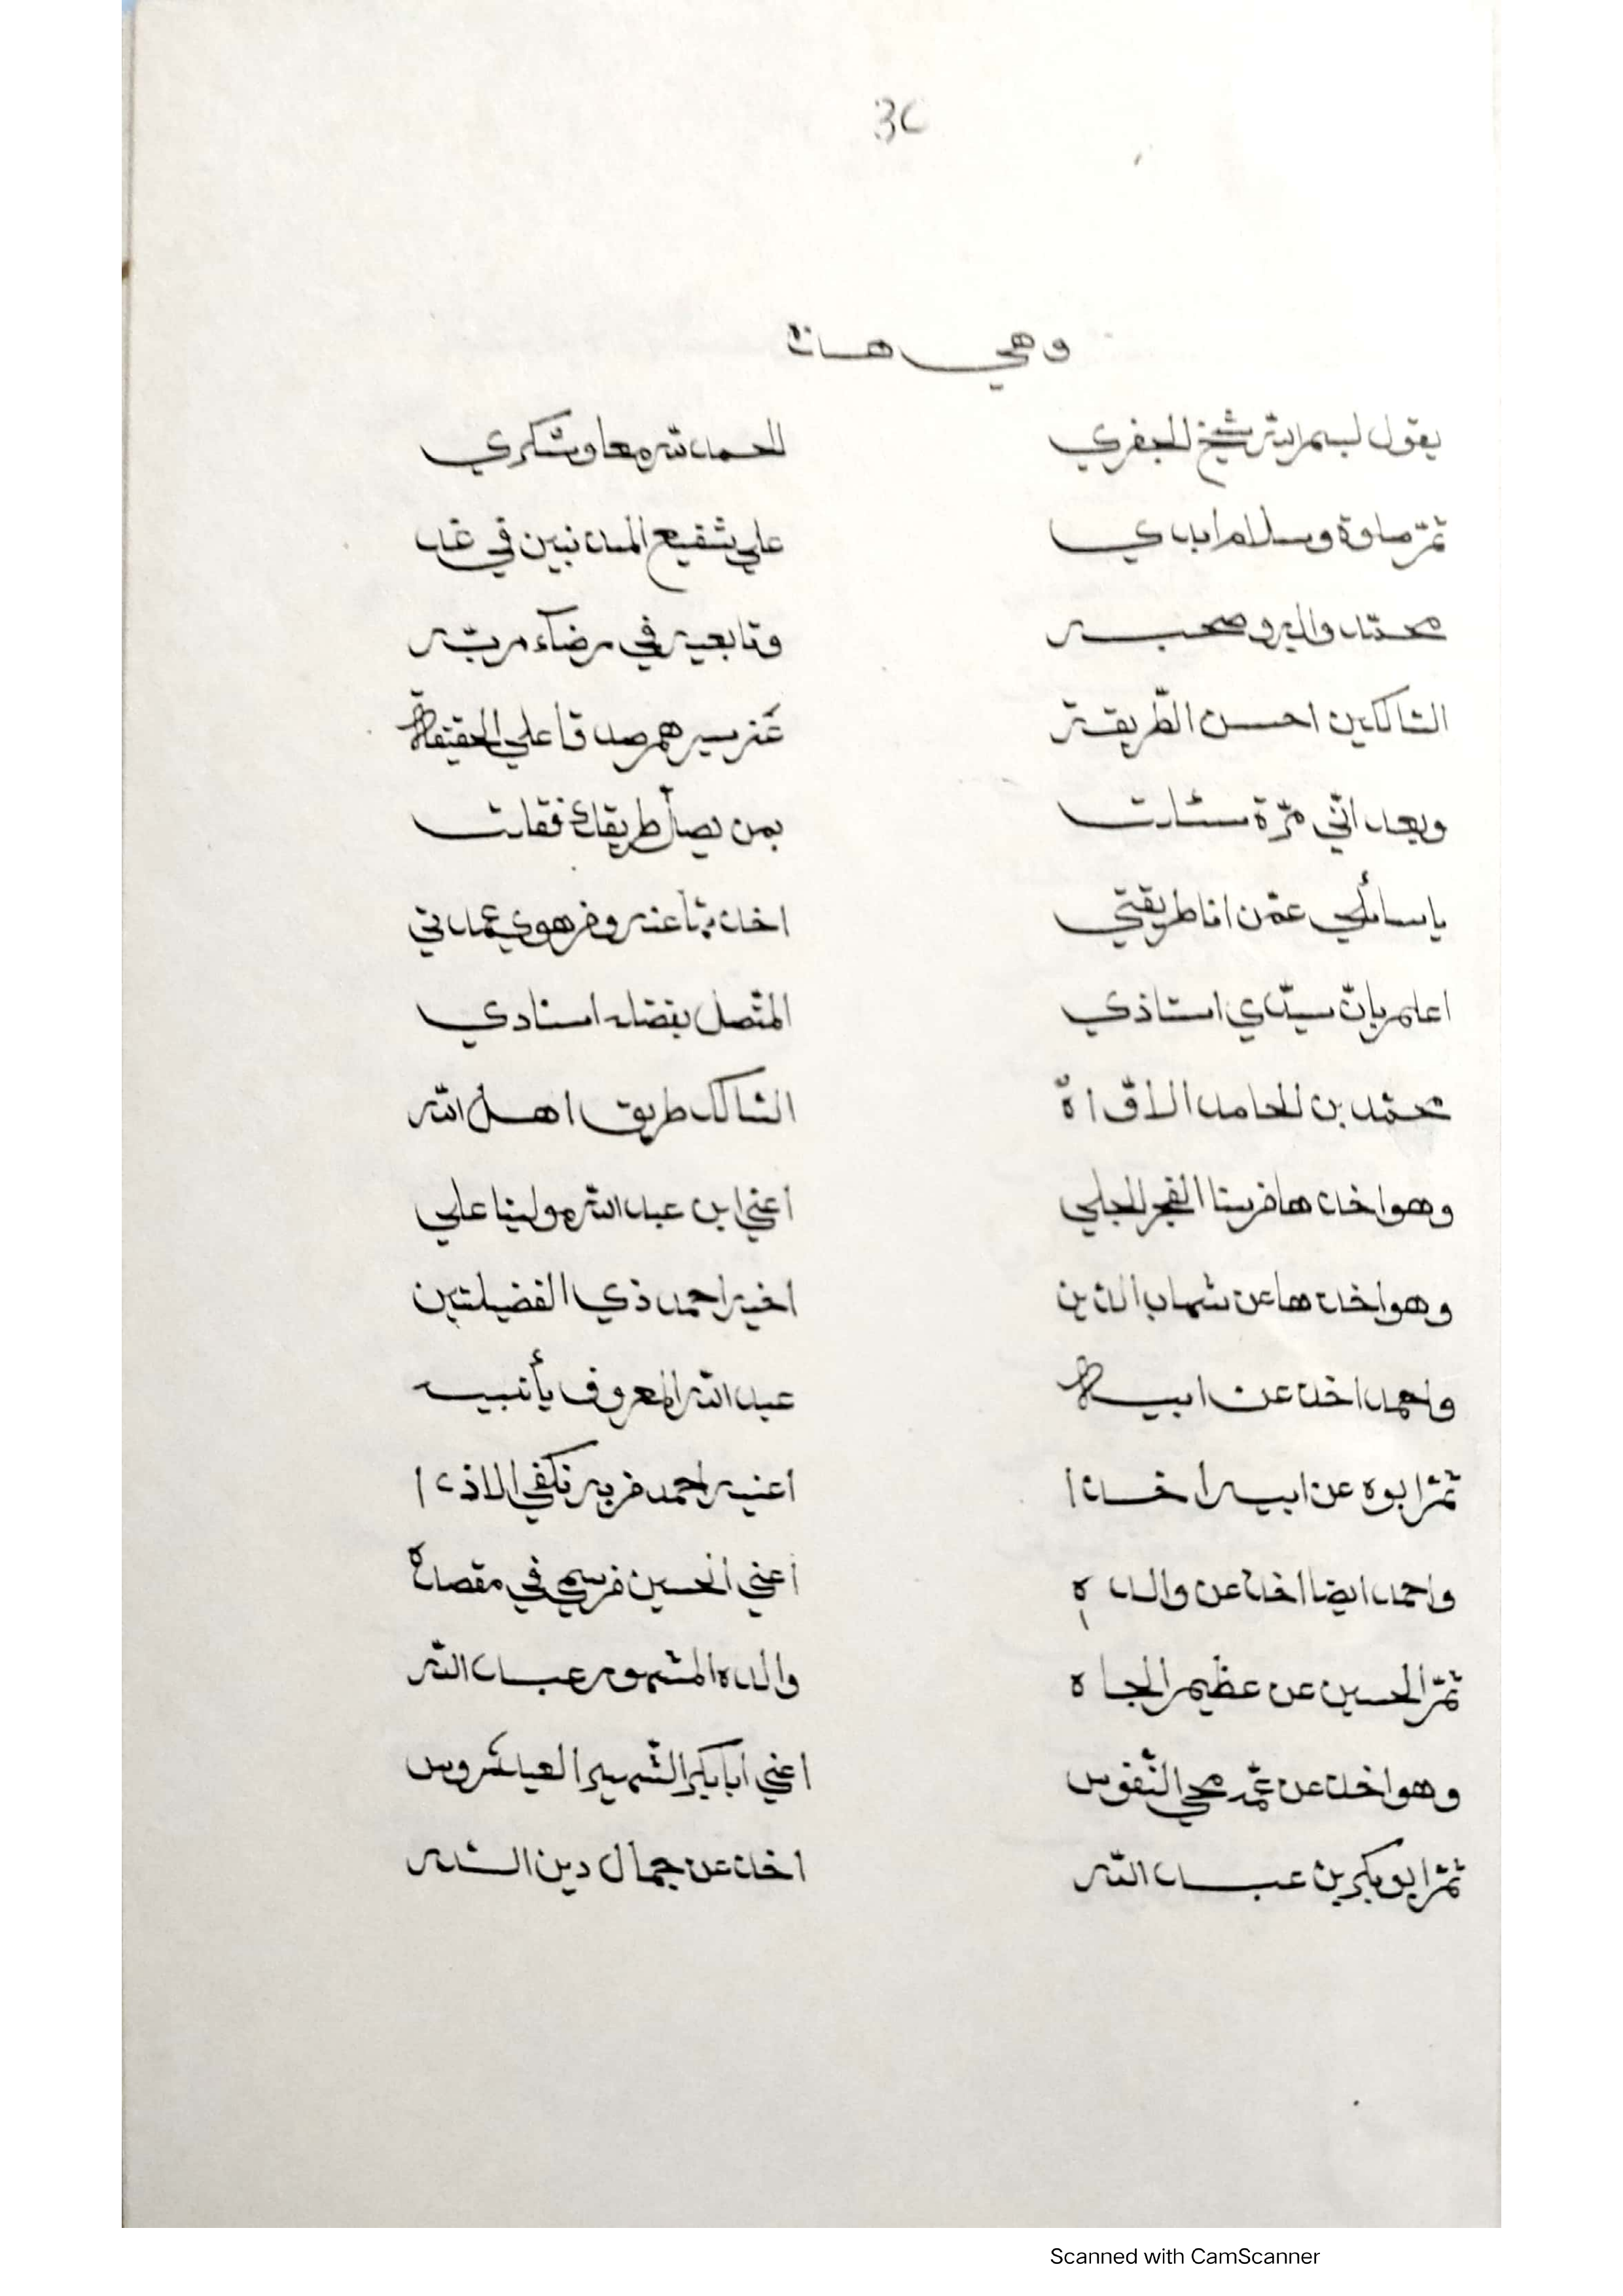 3C
وهي هذه
يقول بسم الله شيخ الجفري الحمد لله معا وشكري
ثمّ صلوة وسلام ابدي علي شفيع المذنبين في غد
محمّد واله وصحبه وتابعيه في رضاء ربّه
السّالكين احسن الطّريقة عن سيرهم صدقا علي الحقيقة
وبعد انّي مرّة سئلت بمن يصل طريقك فقلت
يا سائلي عمّن انا طريقتي اخذتها عنه وفهو عمدتي
اعلم بانّ سيّدي استاذي المتّصل بفضله اسنادي
محمّد بن الحامد الاوّاه السّالك طريق اهل الله
وهو اخذها من الفجر الجلي اعني ابن عبد الله مولينا علي
وهو اخذها عن شهاب الدّين اخيه احمد ذي الفضيلتين
واحمد اخذ عن ابيه عبد الله المعروف
ثمّ ابوه عن ابيه اخذا اعنيه احمد فربه نكفي الاذا
واحمد ايضا اخذ عن والده اعني الحسين في مقصده
ثمّ الحسين عن عظيم الجاه والده المشهور عبد الله
وهو اخذ عن عمّه محي النّفوس اعني ابا بكر الشّهير العيدروس
ثمّ ابو بكر بن عبد الله اخذ عن جمال دين الله
Scanned with CamScanner